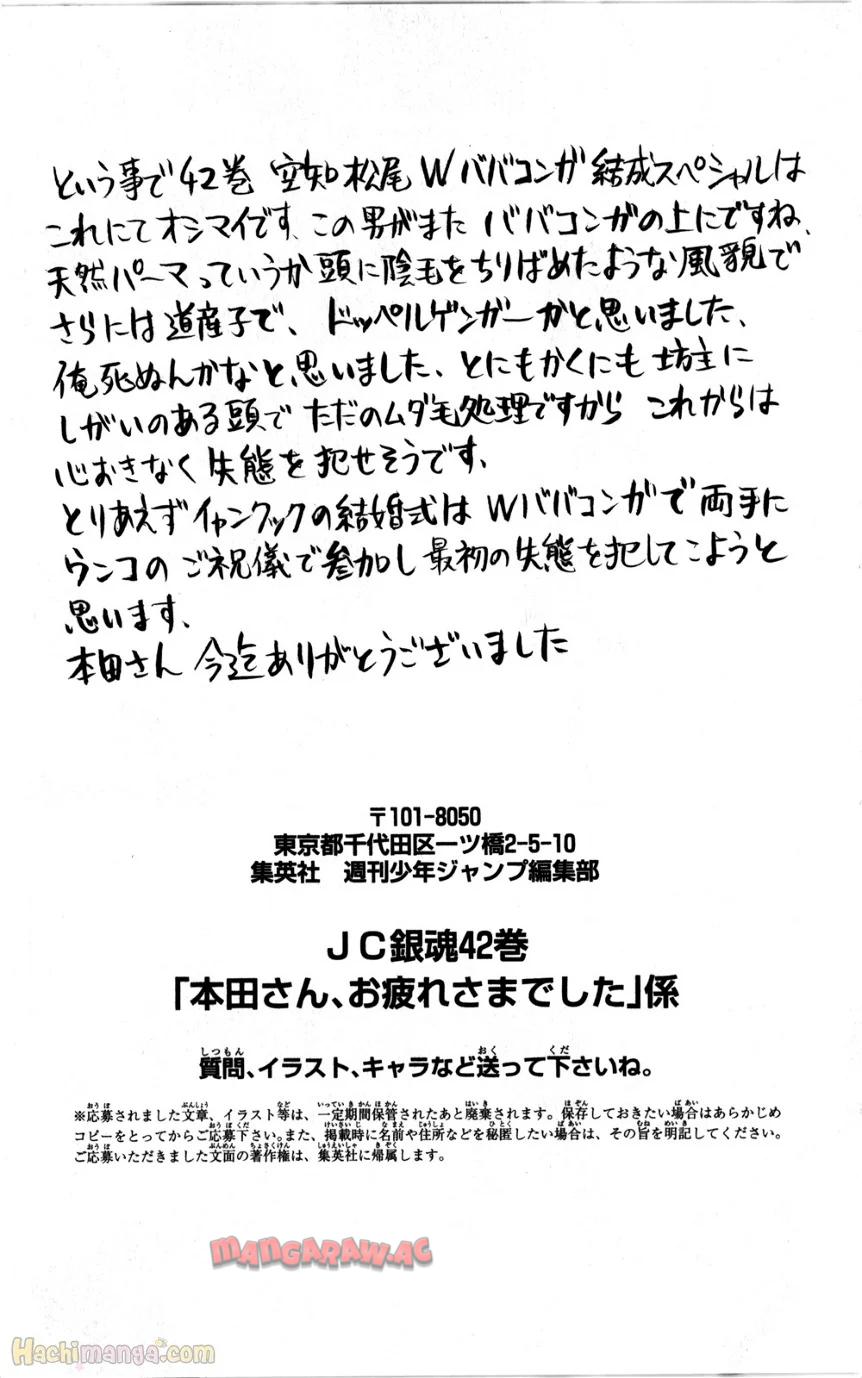 という事で42巻 空知松尾Wババコンガ結成スペシャルは
これにてオシマイです、この男がまた ババコンガの上にですね、
天然パーマっていうか頭に陰毛をちりばめたような風貌で
さらには道産子で、ドッペルゲンガーかと思いました、
俺死ぬんかなと思いました、とにもかくにも坊主に
しがいのある頭で ただのムダ毛処理ですから これからは
心おきなく失態を犯せそうです、
とりあえずイャンクックの結婚式はWババコンガで両手に
ウンコのご祝儀で参加し最初の失態を犯してこようと
思います、
本田さん 今迄ありがとうございました
〒101-8050
東京都千代田区一ツ橋2-5-10
集英社 週刊少年ジャンプ編集部
JC銀魂42巻
「本田さん、お疲れさまでした」係
質問、イラスト、キャラなど送って下さいね。
※応募されました文章、イラスト等は、一定期間保管されたあと廃棄されます。保存しておきたい場合はあらかじめ
コピーをとってからご応募下さい。また、掲載時に名前や住所などを秘匿したい場合は、その旨を明記してください。
ご応募いただきました文面の著作権は、集英社に帰属します。
MANGARAW.AC
Hachimanga.com